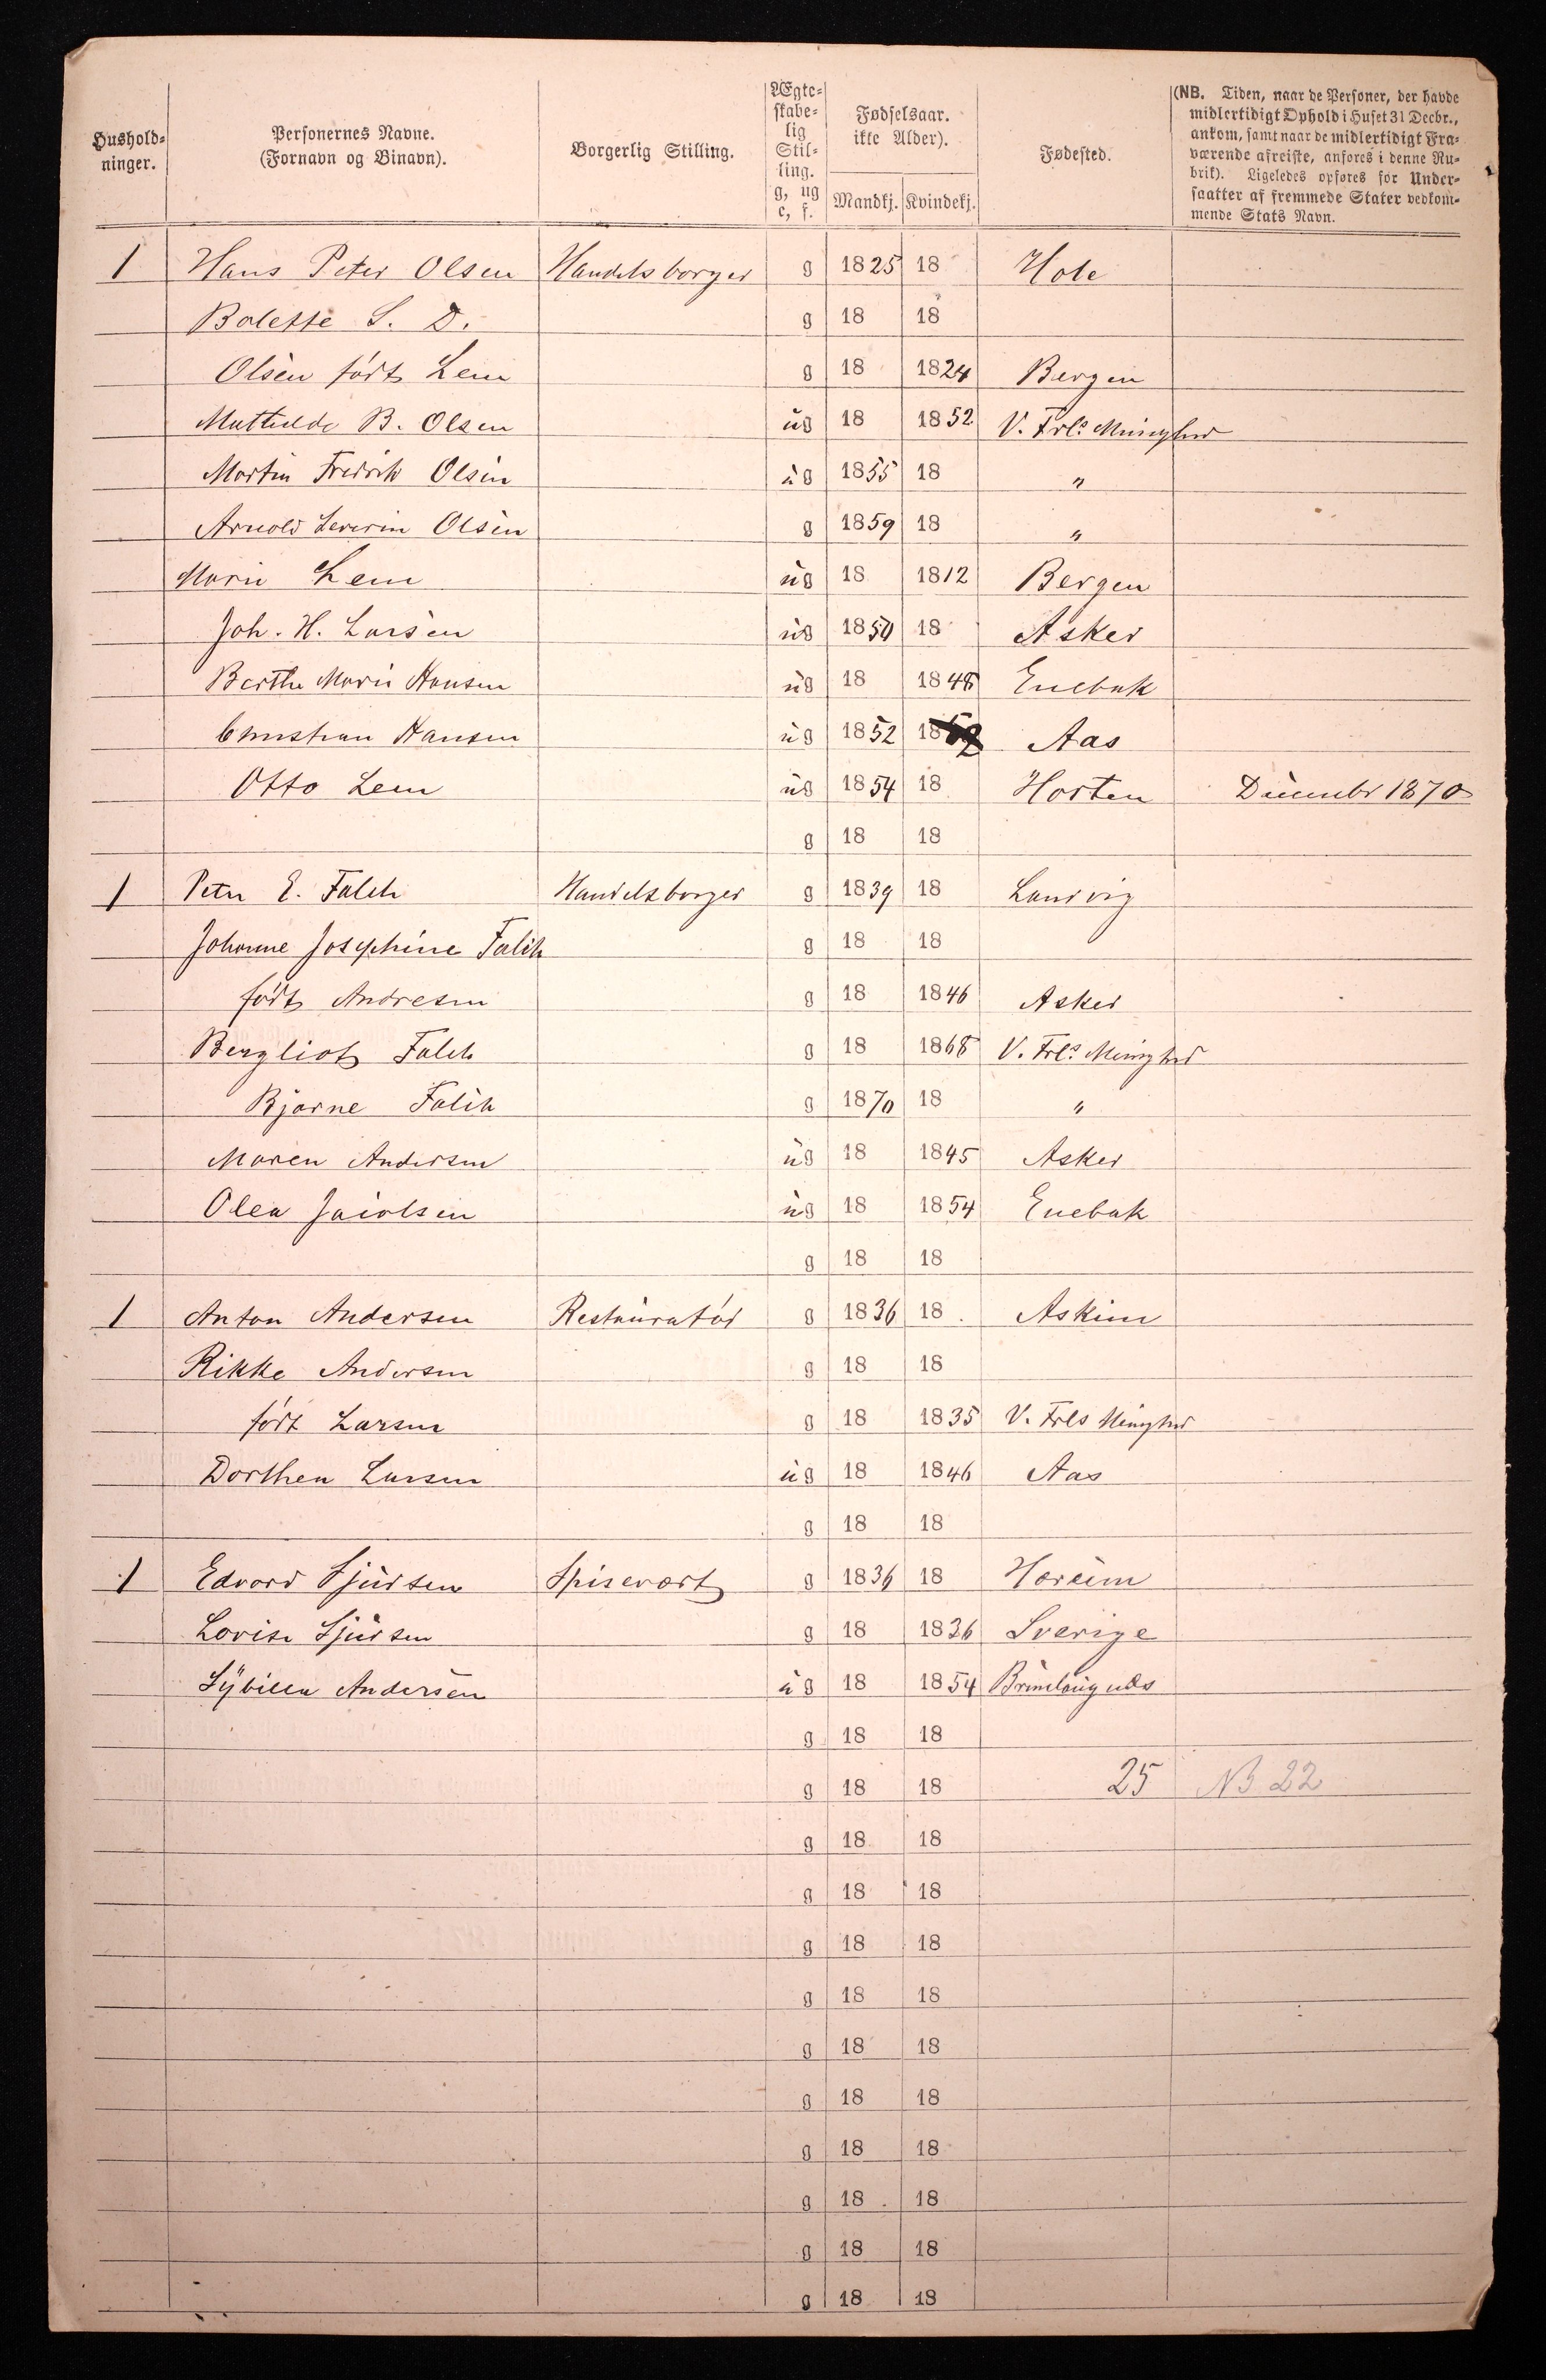 Hushold-
ninger.
Personernes Navne.
(Fornavn og Binavn).
Borgerlig Stilling.
Ægte-
skabe-
lig
Stil-
ling.
g, ug
e, f.
Fødselsaar.
ikke Alder).
Mandkj. Kvindekj.
Fødested.
(NB. Tiden, naar de Personer, der havde
midlertidigt Ophold i Huset 31 Decbr.,
ankom, samt naar de midlertidigt Fra-
værende afreiste, anføres i denne Ru-
brik). Ligeledes opføres for Under-
saatter af fremmede Stater vedkom-
mende Stats Navn.
1 Hans Peter Olsen Handelsborger g 1825 18 Hole
Bolette S. D. g 18 18
Olsen født Lem g 18 1824 Bergen
Mathilde B. Olsen ug 18 1852 V. Frls.
Martin Fredrik Olsen ug 1855 18 "
Arnold Severin Olsen g 1859 18 "
Marie Lem ug 18 1812 Bergen
Joh. H. Larsen ug 1850 18 Asker
Berthe Marie Hansen ug 18 1848 Enebak
Christian Hansen ug 1852 18 Aas
Otto Lem ug 1854 18 Horten December 1870
g 18 18
1 Peter E. Falch Handelsborger g 1839 18 Landvig
Johanne Josephine Falch g 18 18
født Andresen g 18 1846 Asker
Bergliot Falch g 18 1868 V. Frls.
Bjarne Falch g 1870 18 "
Maren Andersen ug 18 1845 Asker
Olea Jacobsen ug 18 1854 Enebak
g 18 18
1 Anton Andersen Restauratør g 1836 18 Askim
Rikke Andersen g 18 18
født Larsen g 18 1835 V. Frls
Dorthea Larsen ug 18 1846 Aas
g 18 18
1 Edvard Sjursen Spisevært g 1836 18
Lovise Sjursen g 18 1836 Sverige
Sybilla Andersen ug 18 1854
g 18 18
g 18 18 25 NB 22
g 18 18
g 18 18
g 18 18
g 18 18
g 18 18
g 18 18
g 18 18
g 18 18
g 18 18
g 18 18